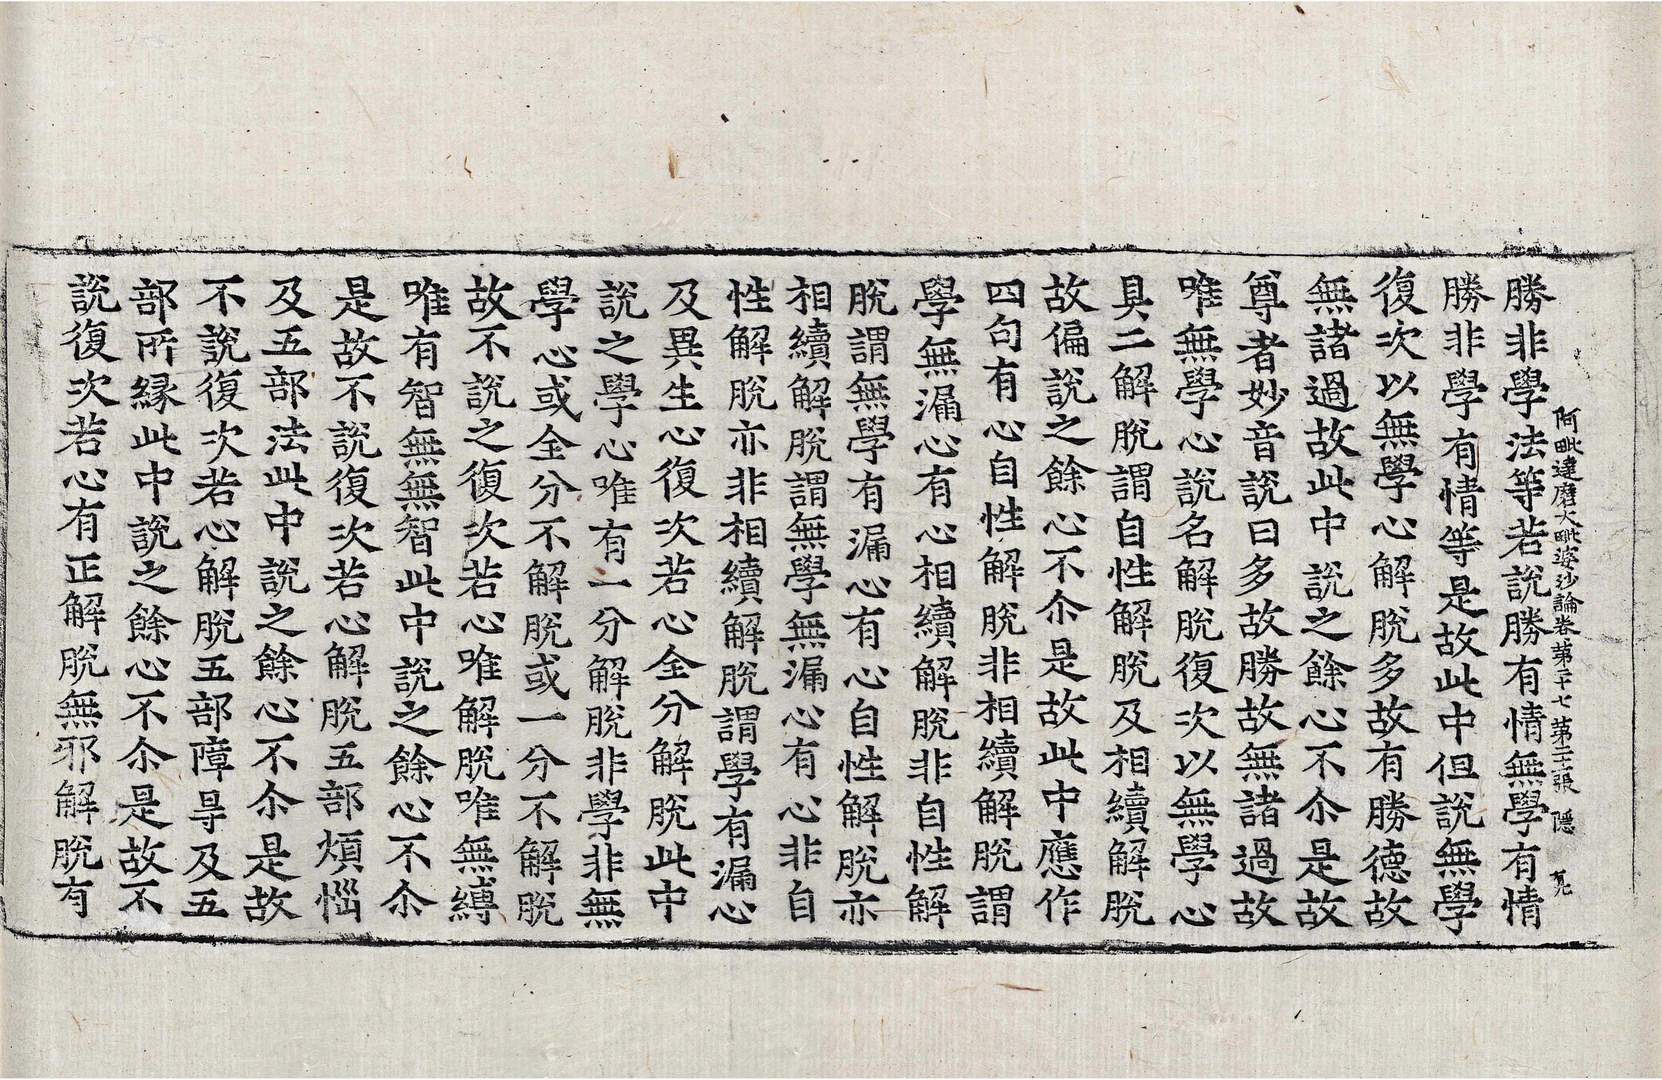 阿毗達磨大毗婆沙論卷第二十七 第二十張 隱
勝非學法等若說勝有情無學有情
勝非學有情等是故此中但說無學
復次以無學心解脫多故有勝德故
無諸過故此中說之餘心不尒是故
尊者妙音說曰多故勝故無諸過故
唯無學心說名解脫復次以無學心
具二解脫謂自性解脫及相續解脫
故偏說之餘心不尒是故此中應作
四句有心自性解脫非相續解脫謂
學無漏心有心相續解脫非自性解
脫謂無學有漏心有心自性解脫亦
相續解脫謂無學無漏心有心非自
性解脫亦非相續解脫謂學有漏心
及異生心復次若心全分解脫此中
說之學心唯有一分解脫非學非無
學心或全分不解脫或一分不解脫
故不說之復次若心唯解脫唯無縛
唯有智無無智此中說之餘心不尒
是故不說復次若心解脫五部煩惱
及五部法此中說之餘心不尒是故
不說復次若心解脫五部障㝵及五
部所緣此中說之餘心不尒是故不
說復次若心有正解脫無邪解脫有